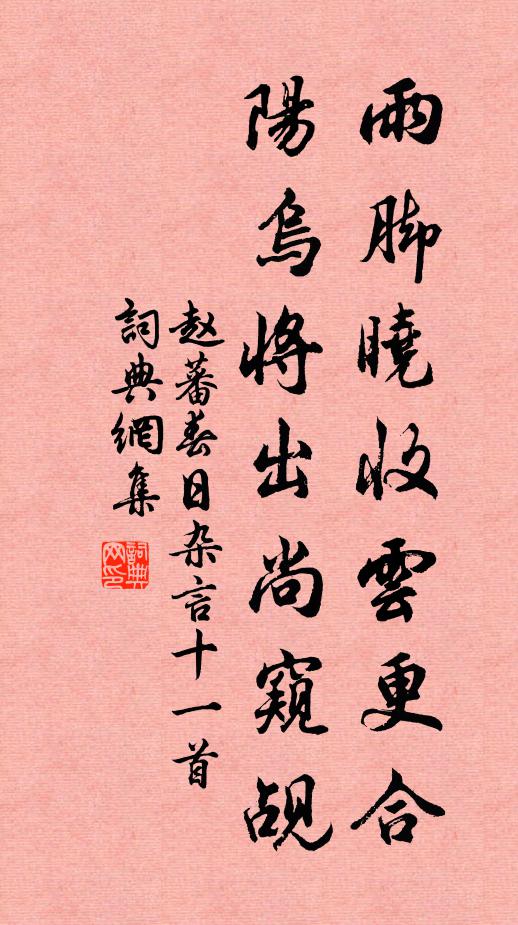 雨脚曉收雲更合
陽烏將出尚窺覘
赵蕃春日杂言十一首
詞典網集
詞典網印